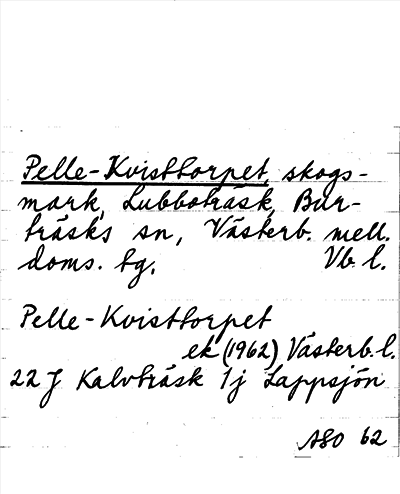 Pelle-Kvisttorpet, skogs-
mark, Lubboträsk, Bur-
träsks sn, Västerb. mell.
doms. tg. Vb. l.
Pelle-Kvisttorpet
ek (1962) Västerb. l.
22 J Kalvträsk 1j Lappsjön
ASO 62